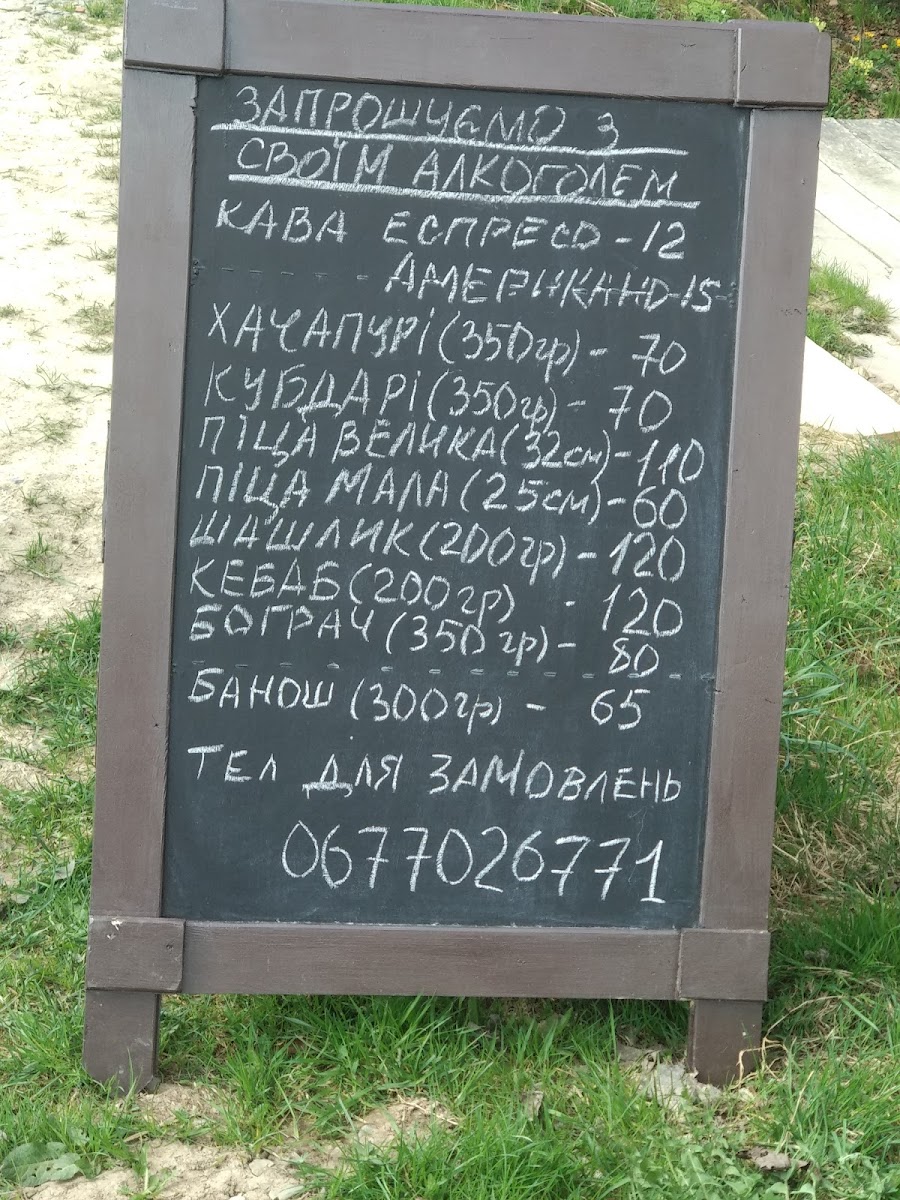 ЗАПРОШУЄМО З
СВОЇМ АЛКОГОЛЕМ
КАВА ЕСПРЕСО - 12
- - - - - АМЕРИКАНО-15-
ХАЧАПУРІ (350гр) - 70
КУБДАРІ (350гр) - 70
ПІЦА ВЕЛИКА (32см) - 110
ПІЦА МАЛА (25см) - 60
ШАШЛИК (200гр) - 120
КЕБАБ (200гр) - 120
БОГРАЧ (350гр) - 80
БАНОШ (300гр) - 65
ТЕЛ ДЛЯ ЗАМОВЛЕНЬ
0677026771